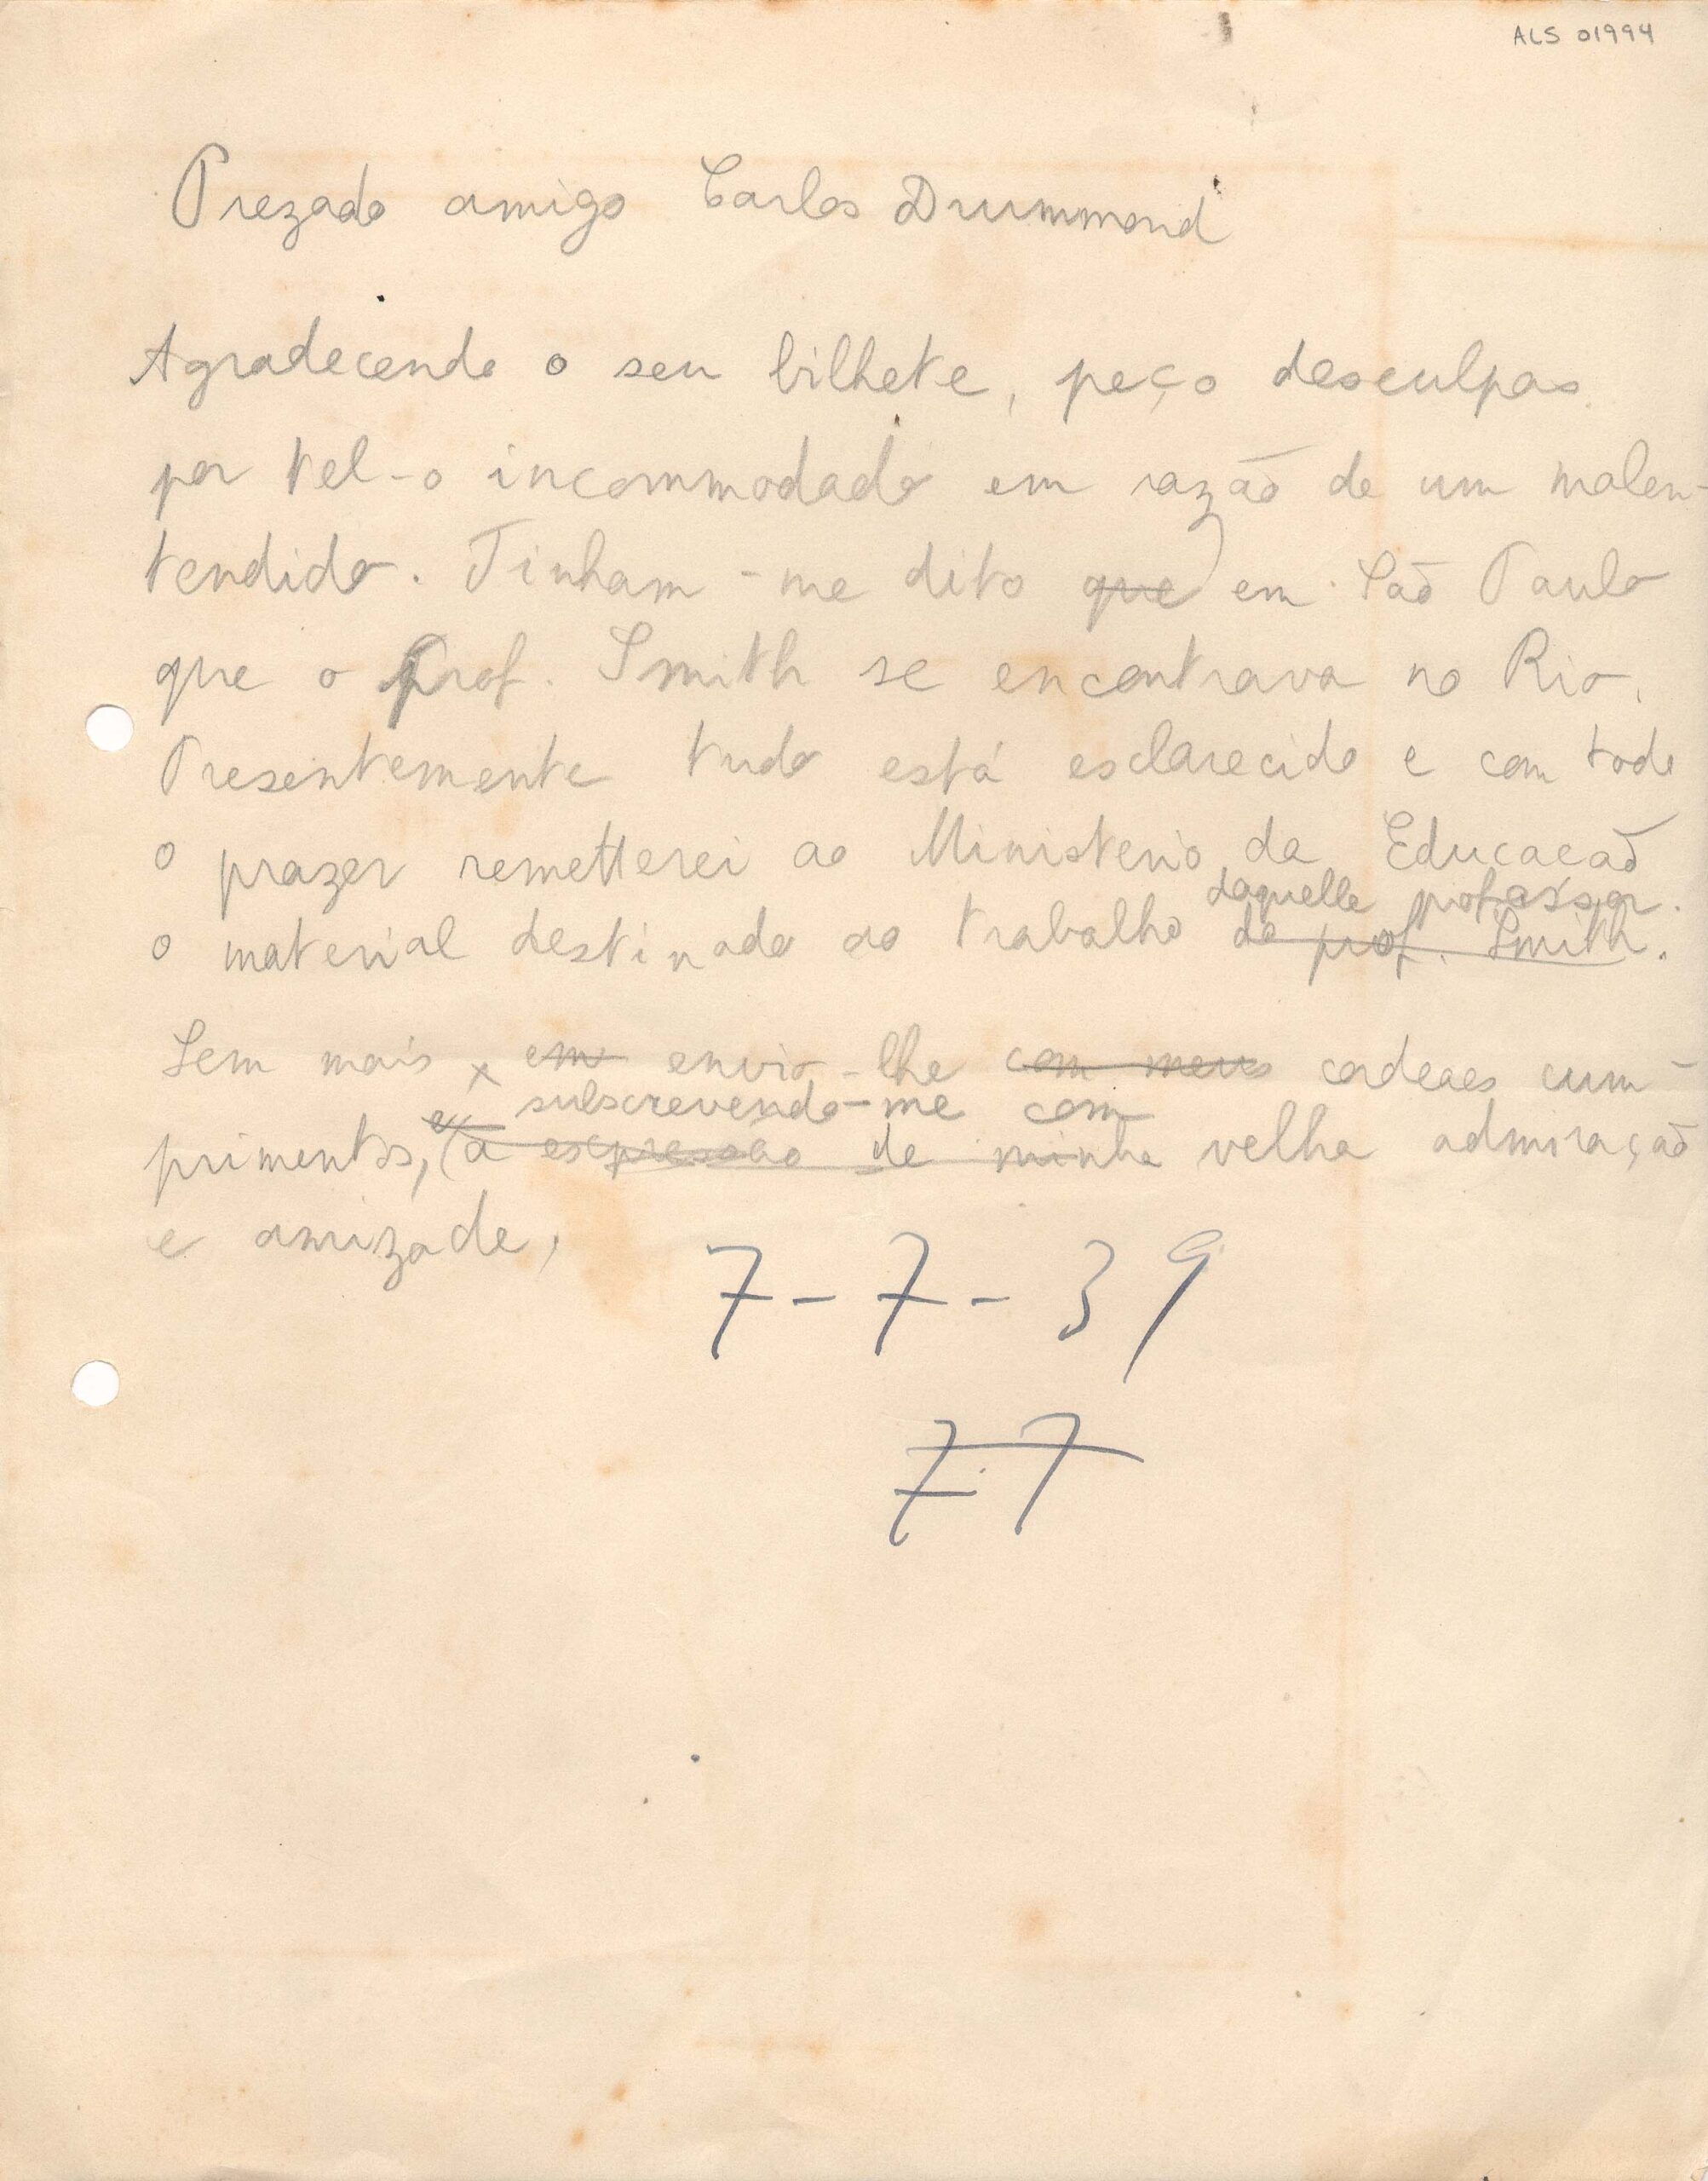 ALS 01994
Prezado amigo Carlos Drummond
Agradecendo o seu bilhete, peço desculpas
por tel-o incommodado em razão de um malen-
tendido. Tinham-me dito que em São Paulo
que o Prof. Smith se encontrava no Rio.
Presentemente tudo está esclarecido e com todo
o prazer remetterei ao Ministerio da Educacão
daquelle professor.
o material destinado ao trabalho do prof. Smith.
Sem mais, em envio-lhe com meus cordeaes cum-
e subscrevendo-me com
primentos, (a expressão de minha velha admiração
e amizade,
7-7-39
7.7